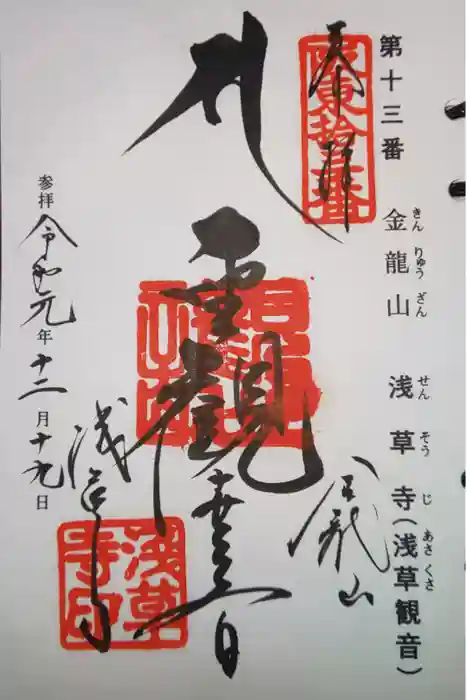 第十三番 金龍山 浅草寺(浅草観音)
きん りゅう ざん せん そう じ あさ くさ
奉拝
坂東拾三番
聖観世音
金龍山
浅草寺
浅草寺印
参拝 令和元年十二月十九日